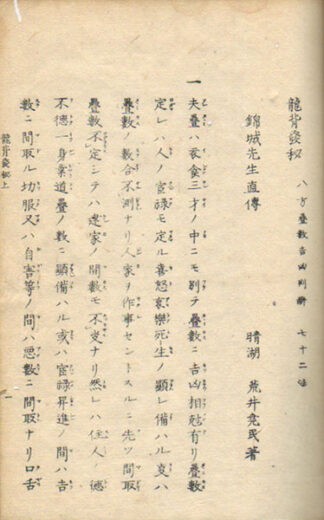 龍背發秘 八方疊數吉凶判斷 七十二法
錦城先生直傳 晴湖 荒井堯民著
一
夫疊ハ衣食三才ノ中ニモ別テ疊數ニ吉凶相尅有リ疊數
定レハ人ノ官禄モ定ル喜怒哀樂死生ノ顯レ備ハル支ハ
疊數ノ數合不測ナリ人家ヲ作事セントスルニ先ツ間取
疊數不定シテハ造家ノ間數モ不支ナリ然レハ住人ノ德
不德一身業道疊ノ數ニ顯備ハル或ハ官禄昇進ノ間ハ吉
數ニ間取ル切服又ハ自害等ノ間ハ惡數ニ間取ナリ口舌
龍背發秘上 一